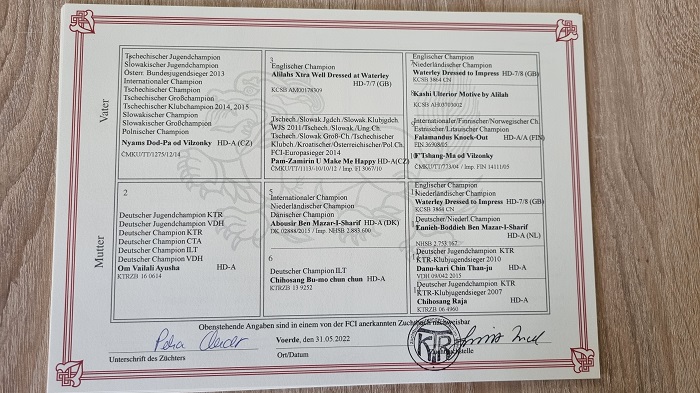 Vater
Tschechischer Jugendchampion
Slowakischer Jugendchampion
Österr. Bundesjugendsieger 2013
Internationaler Champion
Tschechischer Champion
Tschechischer Großchampion
Tschechischer Klubchampion 2014, 2015
Slowakischer Champion
Slowakischer Großchampion
Polnischer Champion
Nyams Dod-Pa od Vilzonky HD-A (CZ)
ČMKU/TT/1275/12/14
3
Englischer Champion
Alilahs Xtra Well Dressed at Waterley
HD-7/7 (GB)
KCSB AM00178309
Tschech./Slowak.Jgdch./Slowak.Klubjgdch.
WJS 2011/Tschech./Slowak./Ung.Ch.
Tschech./Slowak.Groß-Ch./Tschechischer
Klubch./Kroatischer/Österreichischer/Pol.Ch.
FCI-Europasieger 2014
Pam-Zamirin U Make Me Happy HD-A(CZ)
ČMKU/TT/1113/-10/10/12 / Imp. FI 3067/10
Englischer Champion
Niederländischer Champion
Waterley Dressed to Impress HD-7/8 (GB)
KCSB 3864 CN
Kashi Ulterior Motive by Alilah
KCSB AH03703002
Internationaler/Finnischer/Norwegischer Ch.
Estnischer/Litauischer Champion
Falamandus Knock-Out HD-A/A (FIN)
FIN 36908/05
T'Tshang-Ma od Vilzonky
ČMKU/TT/773/04 / Imp. FIN 14111/05
Mutter
2
Deutscher Jugendchampion KTR
Deutscher Jugendchampion VDH
Deutscher Champion KTR
Deutscher Champion CTA
Deutscher Champion ILT
Deutscher Champion VDH
Om Vailali Ayusha HD-A
KTRZB 16 0614
5
Internationaler Champion
Niederländischer Champion
Dänischer Champion
Abousir Ben Mazar-I-Sharif HD-A (DK)
DK 02888/2015 / Imp. NHSB 2.883 600
6
Deutscher Champion ILT
Chihosang Bu-mo chun chun HD-A
KTRZB 13 9252
Englischer Champion
Niederländischer Champion
Waterley Dressed to Impress HD-7/8 (GB)
KCSB 3864 CN
Deutscher/Niederl.Champion
Eunieh-Boddieh Ben Mazar-I-Sharif
HD-A (NL)
NHSB 2.753 167
Deutscher Jugendchampion KTR
KTR-Klubjugendsieger 2010
Danu-kari Chin Than-ju HD-A
VDH 09/042 2015
Deutscher Jugendchampion KTR
KTR-Klubjugendsieger 2007
Chihosang Raja HD-A
KTRZB 06 4960
Obenstehende Angaben sind in einem von der FCI anerkannten Zuchtbuch nachweisbar
Voerde, den 31.05.2022
KTR
Unterschrift des Züchters
Ort/Datum